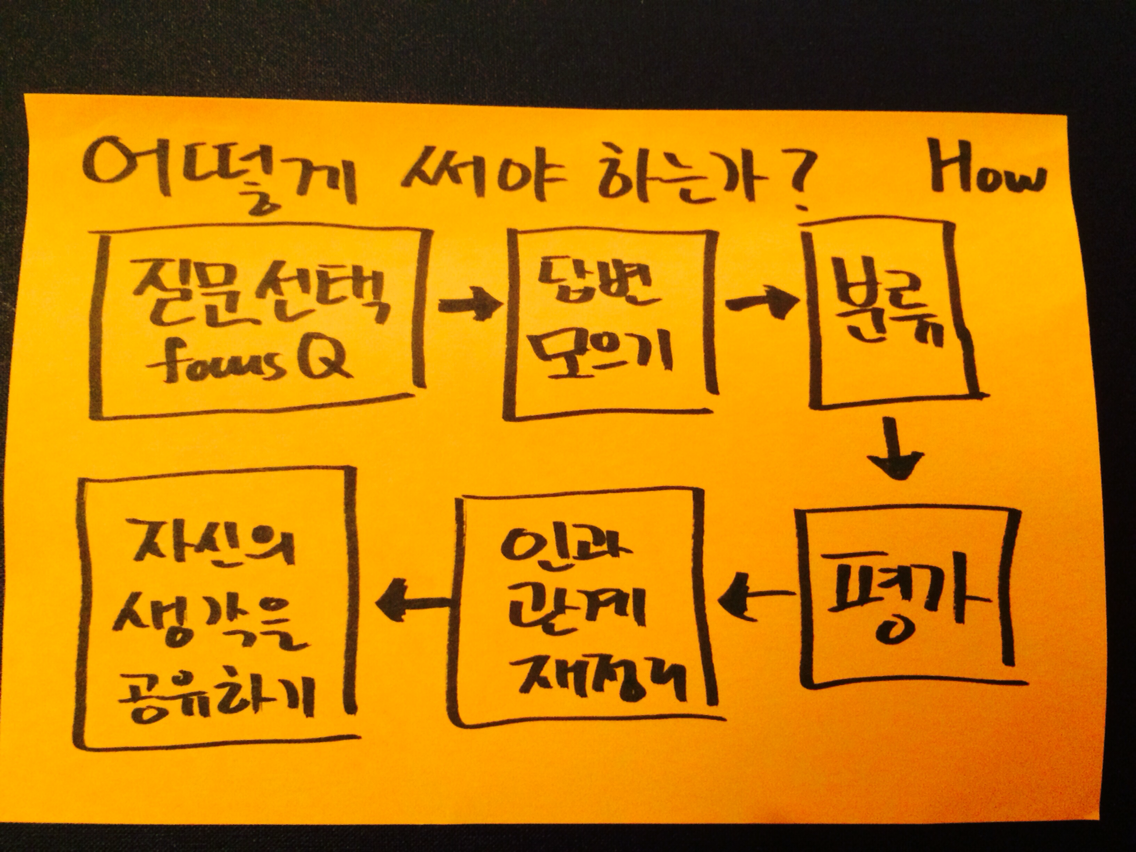 어떻게 써야 하는가? How
질문선택
focus Q
답변
모으기
분류
평가
인과
관계
재정리
자신의
생각을
공유하기